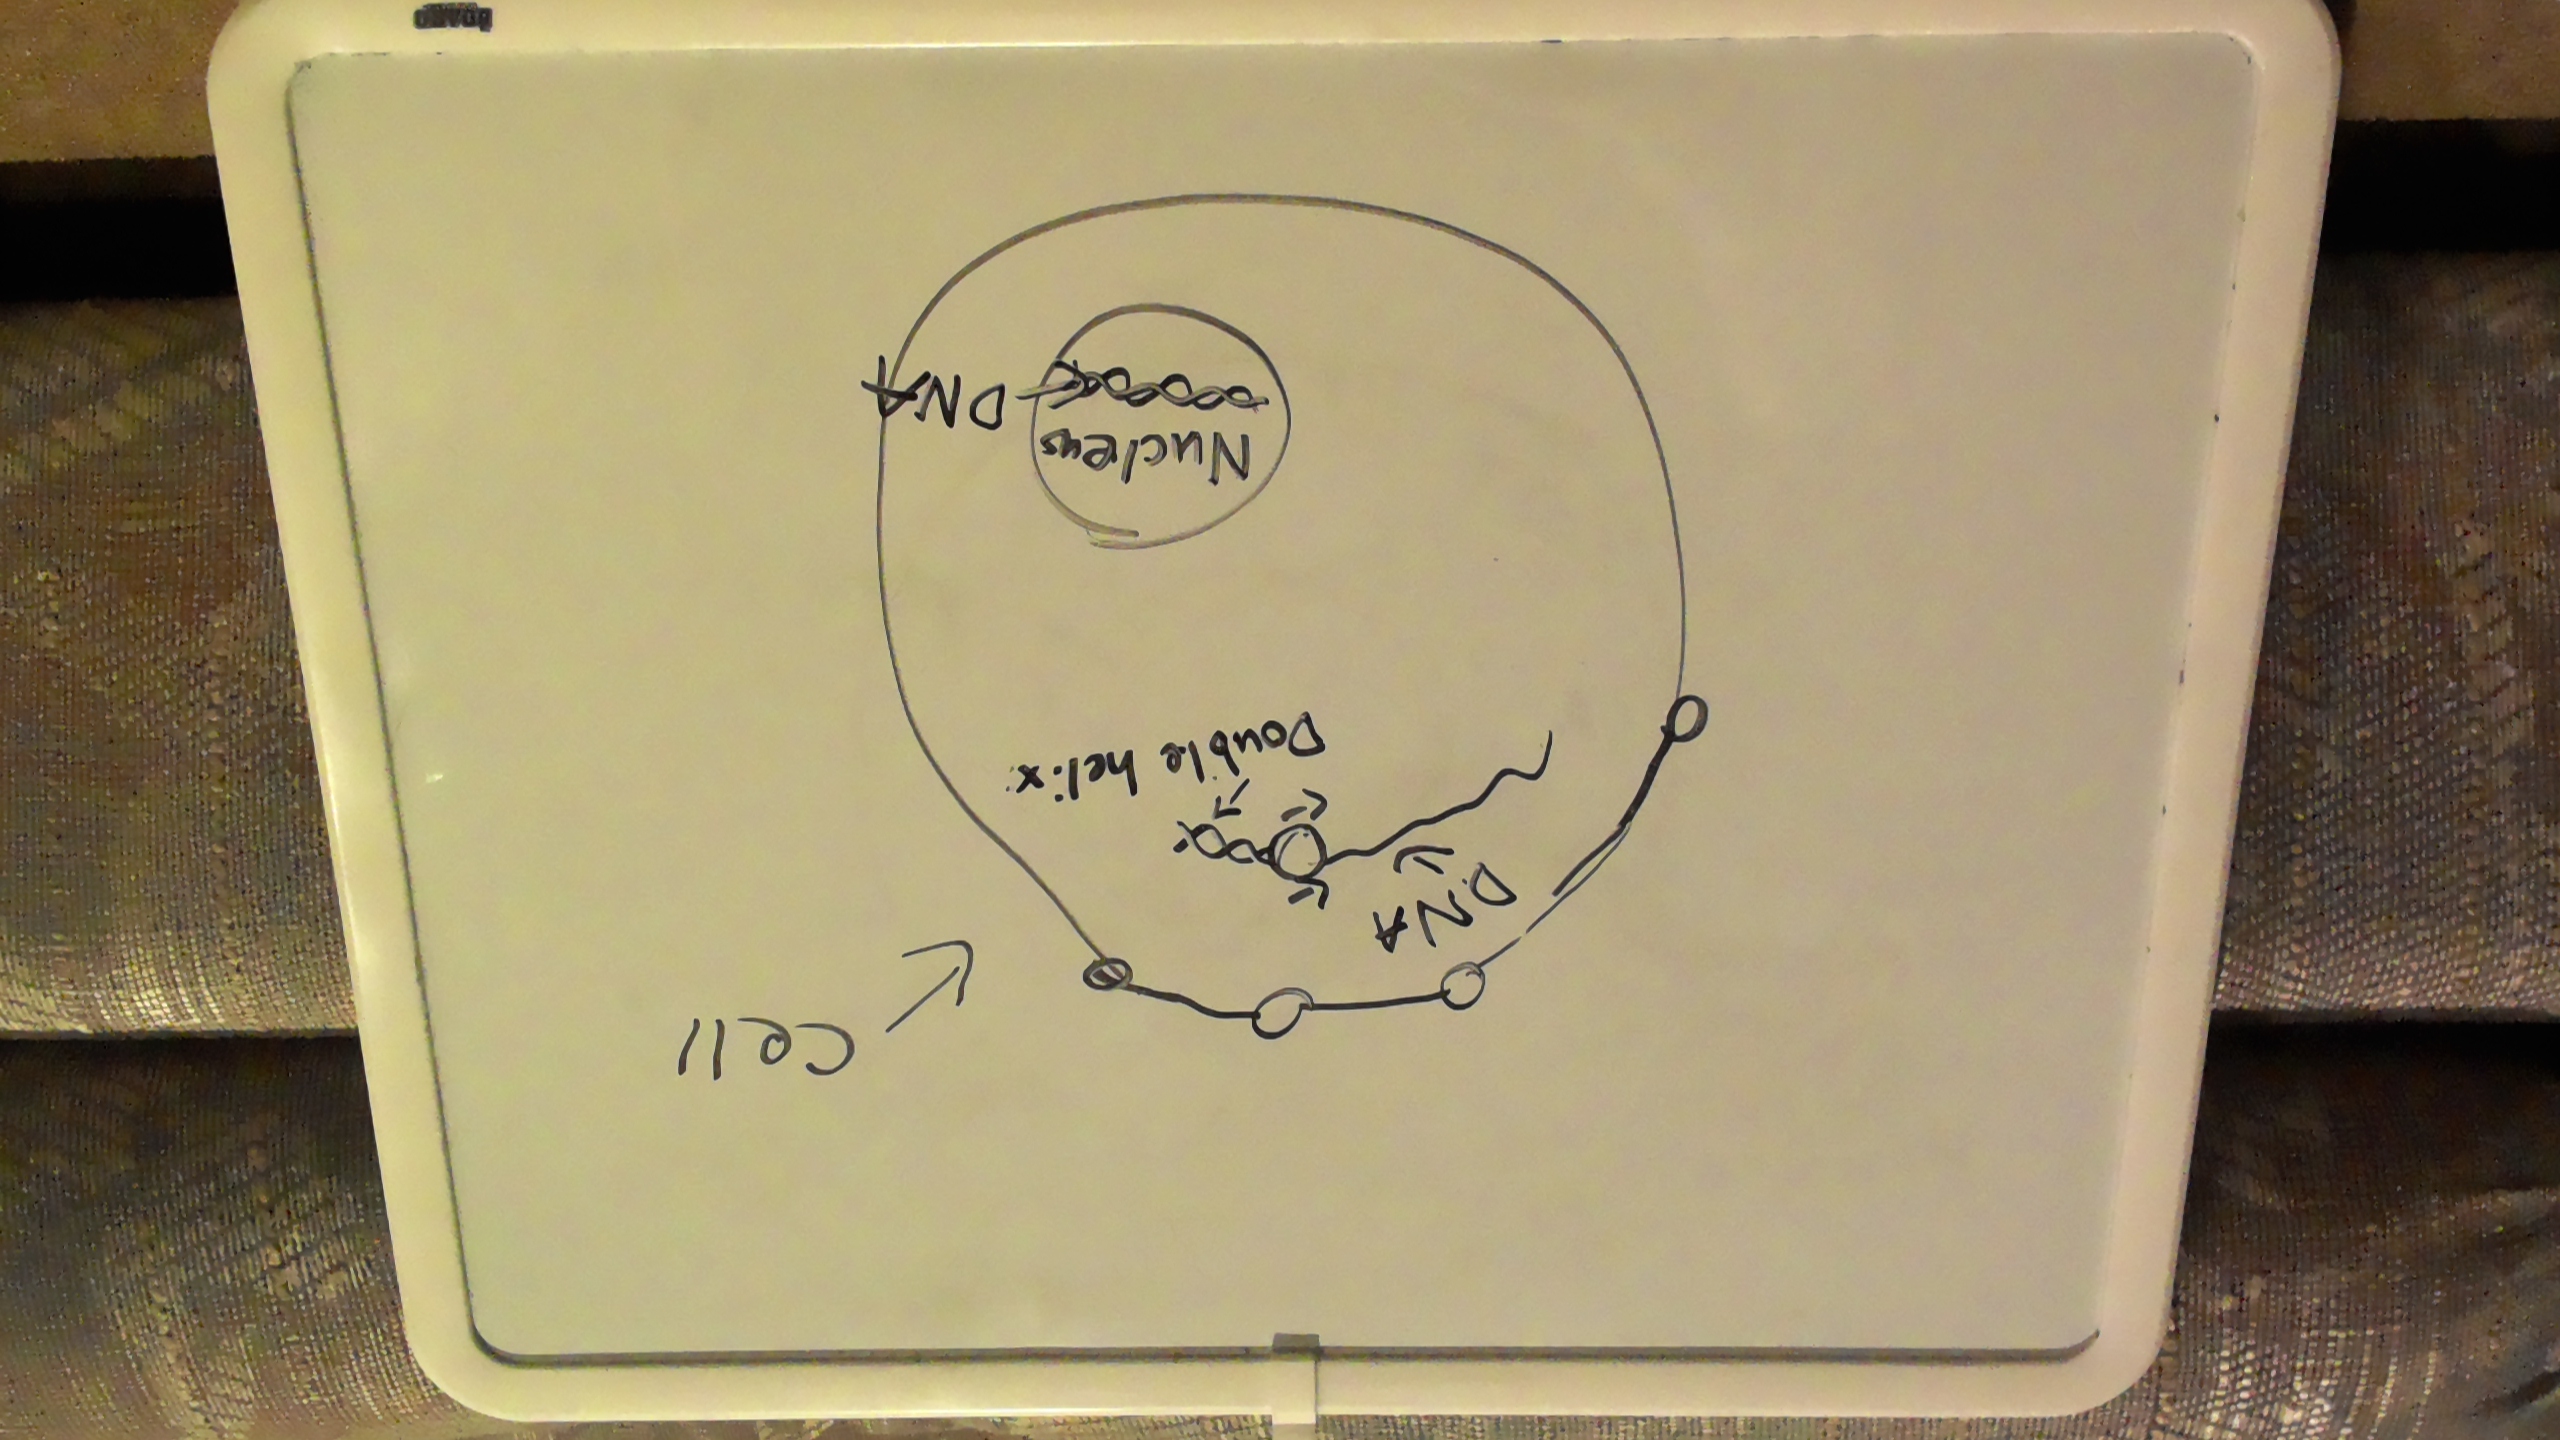 Cell
DNA
Double helix
Nucleus
DNA
BOARD